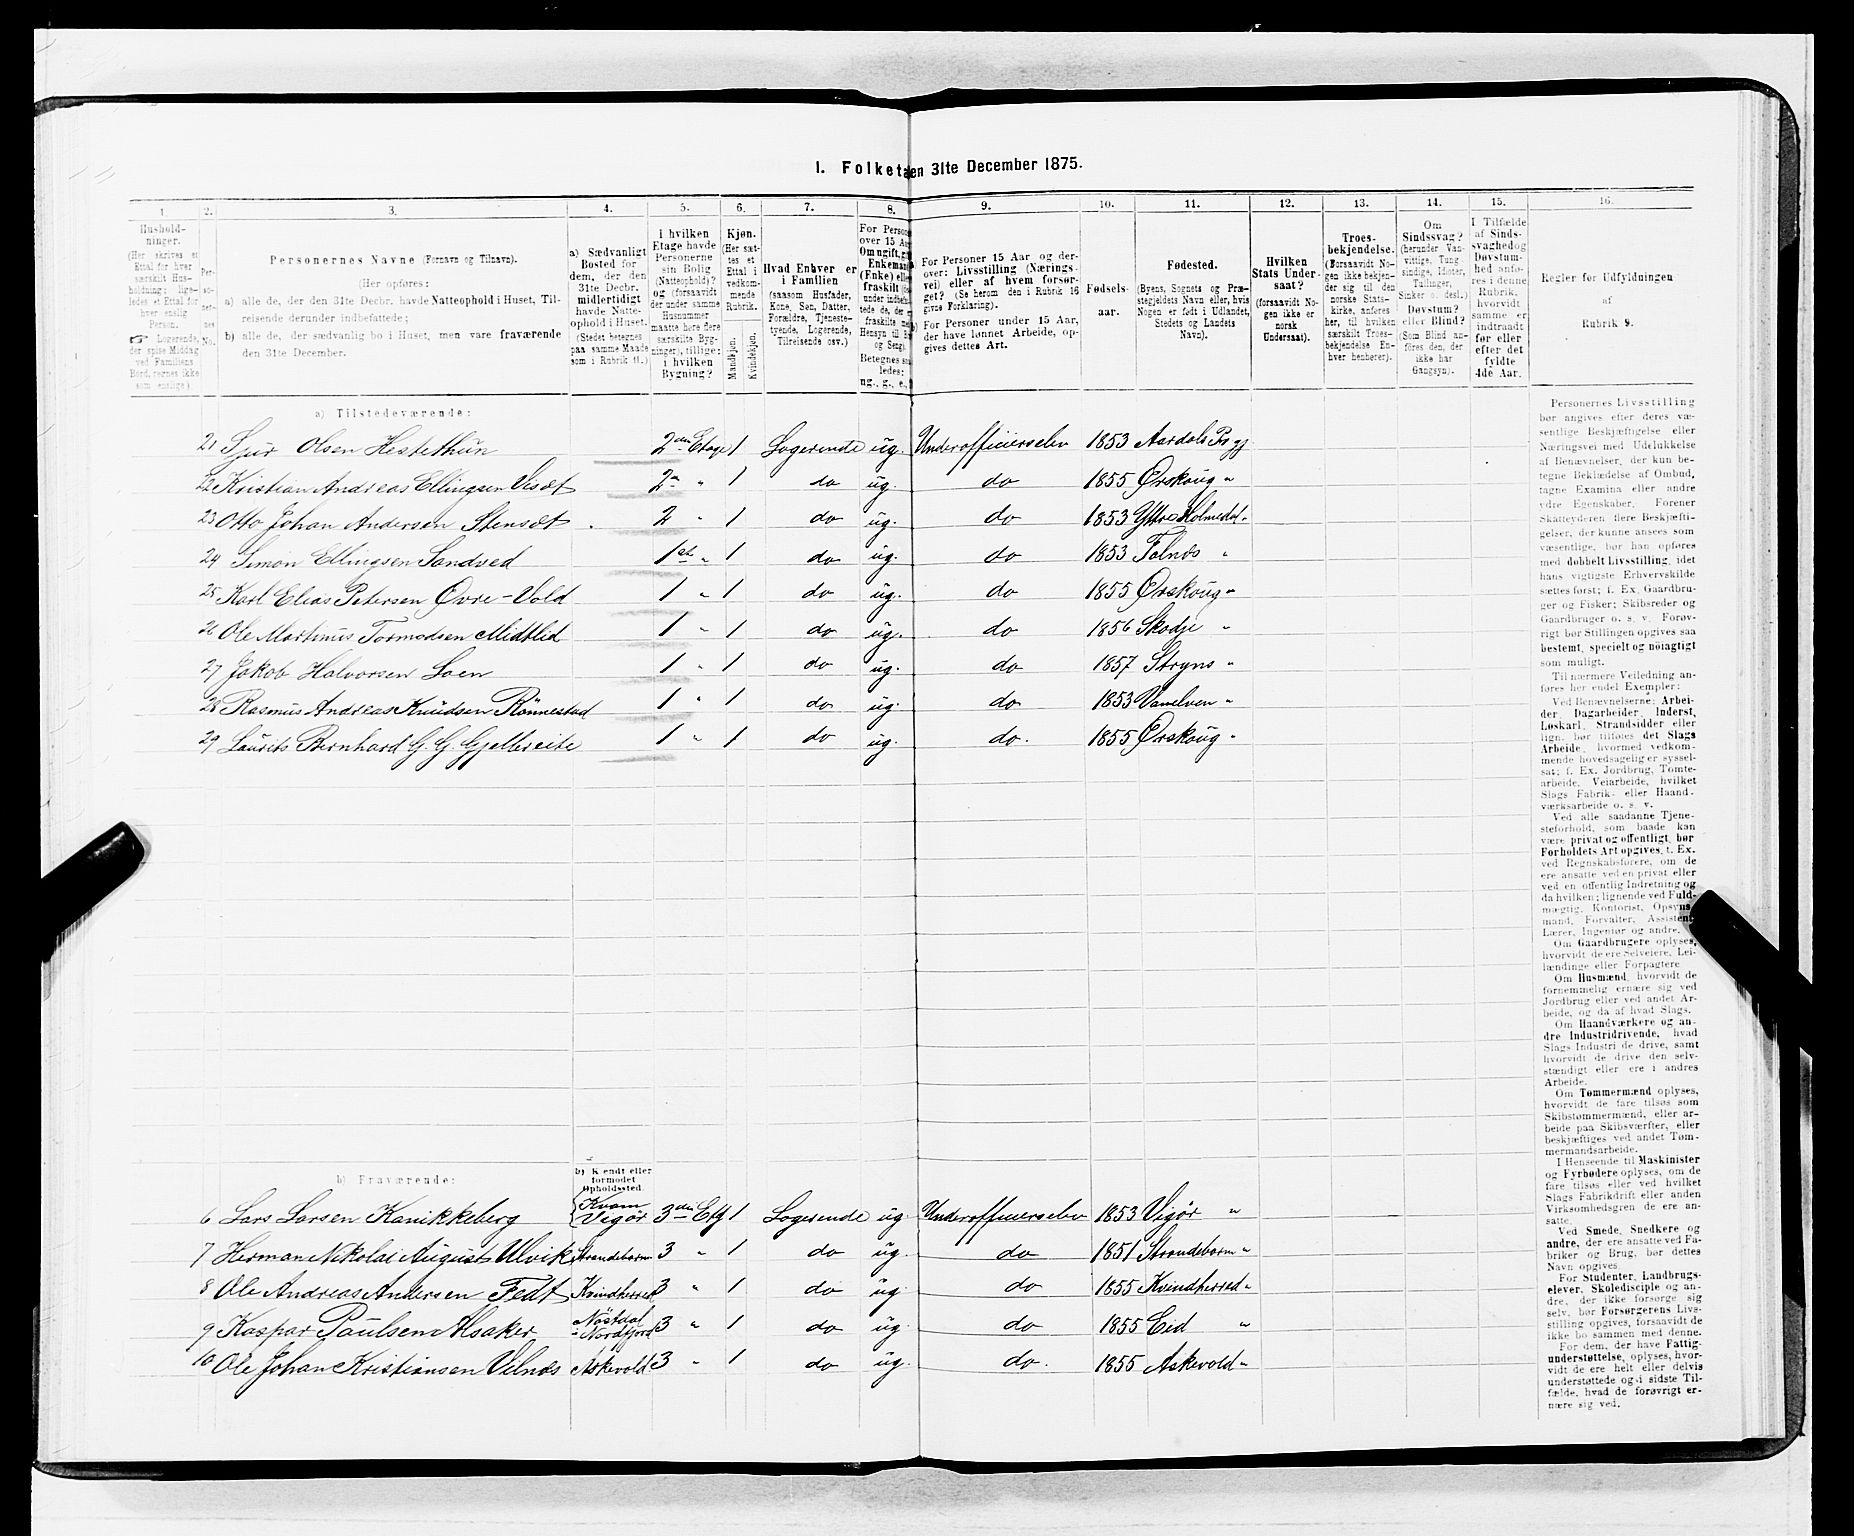 I. Folketællen 31te December 1875.
1. 2. 3. 4. 5. 6. 7. 8. 9. 10. 11. 12. 13. 14. 15. 16.
Hushold-
ninger.
(Her skrives et
Ettal for hver
særskilt Hus-
holdning; lige-
ledes et Ettal for
hver enslig
Person.
☛ Logerende,
der spise Middag
ved Familiens
Bord, regnes ikke
som enslige).
Personernes Navne (Fornavn og Tilnavn).
(Her opføres:
a) alle de, der den 31te Decbr. havde Natteophold i Huset, Til-
reisende derunder indbefattede;
b) alle de, der sædvanlig bo i Huset, men vare fraværende
den 31te December.
a) Sædvanligt
Bosted for
dem, der den
31te Decbr.
midlertidigt
havde Natte-
ophold i Huset.
(Stedet betegnes
paa samme Maade
som i Rubrik 11.)
I hvilken
Etage havde
Personerne
sin Bolig
(Natteophold)?
og (forsaavidt
der under samme
Husnummer
maatte høre flere
særskilte Byg-
ninger), tillige:
i hvilken
Bygning?
Kjøn.
(Her sæt-
tes et
Ettal i
vedkom-
mende
Rubrik.
Mandkjøn.
Kvindekjøn.
Hvad Enhver er
i Familien
(saasom Husfader,
Kone, Søn, Datter,
Forældre, Tjeneste-
tyende, Logerende,
Tilreisende osv.)
For Personer 15 Aar og der-
over: Livsstilling (Nærings-
vei) eller af hvem forsør-
get? (Se herom den i Rubrik 16
givne Forklaring).
For Personer under 15 Aar,
der have lønnet Arbeide, op-
gives dettes Art.
Fødsels-
aar.
Fødested.
(Byens, Sognets og Præ-
stegjeldets Navn eller, hvis
Nogen er født i Udlandet,
Stedets og Landets
Navn).
Hvilken
Stats Under-
saat?
(forsaavidt No-
gen ikke er
norsk
Undersaat).
Troes-
bekjendelse.
(Forsaavidt No-
gen ikke bekjen-
der sig til den
norske Stats-
kirke, anføres
her, til hvilken
særskilt Troes-
bekjendelse En-
hver henhører).
Om
Sindssvag?
(herunder Van-
vittige, Tung-
sindige, Idioter,
Tullinger,
Sinker o. desl.)
Døvstum?
eller Blind?
(Som Blind an-
føres den, der
ikke har
Gangsyn).
I Tilfælde
af Sinds-
svaghed og
Døvstum-
hed anfø-
res i denne
Rubrik,
hvorvidt
samme er
indtraadt
før eller
efter det
fyldte
4de Aar.
Regler for Udfyldningen
af
Rubrik 9.
a) Tilstedeværende:
21 Sjur Olsen Hestethun 2den Etage 1 Logerende ug. Underofficierselev 1853 Aardals Prgj
22 Kristian Andreas Ellingsen Viset 2 " 1 do ug. do 1855 Ørskoug "
23 Otto Johan Andersen Stenset 2 " 1 do ug. do 1853 Yttre Holmedal "
24 Simon Ellingsen Sandved 1st " 1 do ug. do 1853 Folnæs "
25 Karl Elias Petersen Øvre-Vold 1 " 1 do ug. do 1855 Ørskoug "
26 Ole Martinus Tormodsen Midtlid 1 " 1 do ug. do 1856 Skodje "
27 Jakob Halvorsen Loen 1 " 1 do ug. do 1857 Stryns "
28 Rasmus Andreas Knudsen Rönnestad 1 " 1 do ug. do 1853 Vanelven "
29 Laurits Bernhard G. G. Gjellereite 1 " 1 do ug. do. 1855 Ørskoug "
b) Fraværende:
b) Kjendt eller
formodet
Opholdssted.
6 Lars Larsen Kanikkeberg Kvam Vigör 3die Etg 1 Logerende ug Underofficierselev 1853 Vigör "
7 Herman Nikolai August Ulvik Strandebarm 3 " 1 do ug. do 1851 Strandebarm "
8 Ole Andreas Andersen Fedt Kvindherred 3 " 1 do ug. do 1855 Kvindherred "
9 Kaspar Paulsen Alsaker Nöstdal i Nordfjord 3 " 1 do ug. do 1855 Eid "
10 Ole Johan Kristiansen Vilnæs Askevold 3 " 1 do ug. do. 1855 Askevold "
Personernes Livsstilling
bør angives efter deres væ-
sentlige Beskjæftigelse eller
Næringsvei med Udelukkelse
af Benævnelser, der kun be-
tegne Beklædelse af Ombud,
tagne Examina eller andre
ydre Egenskaber. Forener
Skatteyderen flere Beskjæfti-
gelser, der kunne ansees som
væsentlige, bør han opføres
med dobbelt Livsstilling, idet
hans vigtigste Erhvervskilde
sættes først; f. Ex. Gaardbru-
ger og Fisker; Skibsreder og
Gaardbruger o. s. v. Forøv-
rigt bør Stillingen opgives saa
bestemt, specielt og nøiagtigt
som muligt.
Til nærmere Veiledning an-
føres her endel Exempler:
Ved Benævnelserne: Arbei-
der, Dagarbeider, Inderst,
Løskarl, Strandsidder eller
lign. bør tilføies det Slags
Arbeide, hvormed vedkom-
mende hovedsagelig er syssel-
sat; f. Ex. Jordbrug, Tomte-
arbeide, Veiarbeide, hvilket
Slags Fabrik- eller Haand-
værksarbeide o. s. v.
Ved alle saadanne Tjene-
steforhold, som baade kan
være privat og offentligt, bør
Forholdets Art opgives, f. Ex.
ved Regnskabsførere, om de
ere ansatte ved en privat eller
ved en offentlig Indretning og
da hvilken; lignende ved Fuld-
mægtig, Kontorist, Opsyns-
mand, Forvalter, Assistent,
Lærer, Ingeniør og andre.
Om Gaardbrugere oplyses,
hvorvidt de ere Selveiere, Lei-
lændinge eller Forpagtere
Om Husmænd, hvorvidt de
fornemmelig ernære sig ved
Jordbrug eller ved andet Ar-
beide, og da af hvad Slags.
Om Haandværkere og an-
dre Industridrivende, hvad
Slags Industri de drive, samt
hvorvidt de drive den selv-
stændigt eller ere i andres
Arbeide.
Om Tømmermænd oplyses,
hvorvidt de fare tilsøs som
Skibstømmermænd, eller ar-
beide paa Skibsværfter, eller
beskjæftiges ved andet Tøm-
mermandsarbeide.
I Henseende til Maskinister
og Fyrbødere oplyses, om de
fare tilsøs eller ved hvilket
Slags Fabrikdrift eller anden
Virksomhedsgren de ere an-
satte.
Ved Smede, Snedkere og
andre, der ere ansatte ved Fa-
briker og Brug, bør dettes
Navn opgives.
For Studenter, Landbrugs-
elever, Skoledisciple og an-
dre, der ikke forsørge sig
selv, bør Forsørgerens Livs-
stilling opgives, forsaavidt de
ikke bo sammen med denne.
For dem, der have Fattig-
understøttelse, oplyses, hvor-
vidt de ere helt eller delvis
understøttede og i sidste Til-
fælde, hvad de forøvrigt er-
nære sig ved.